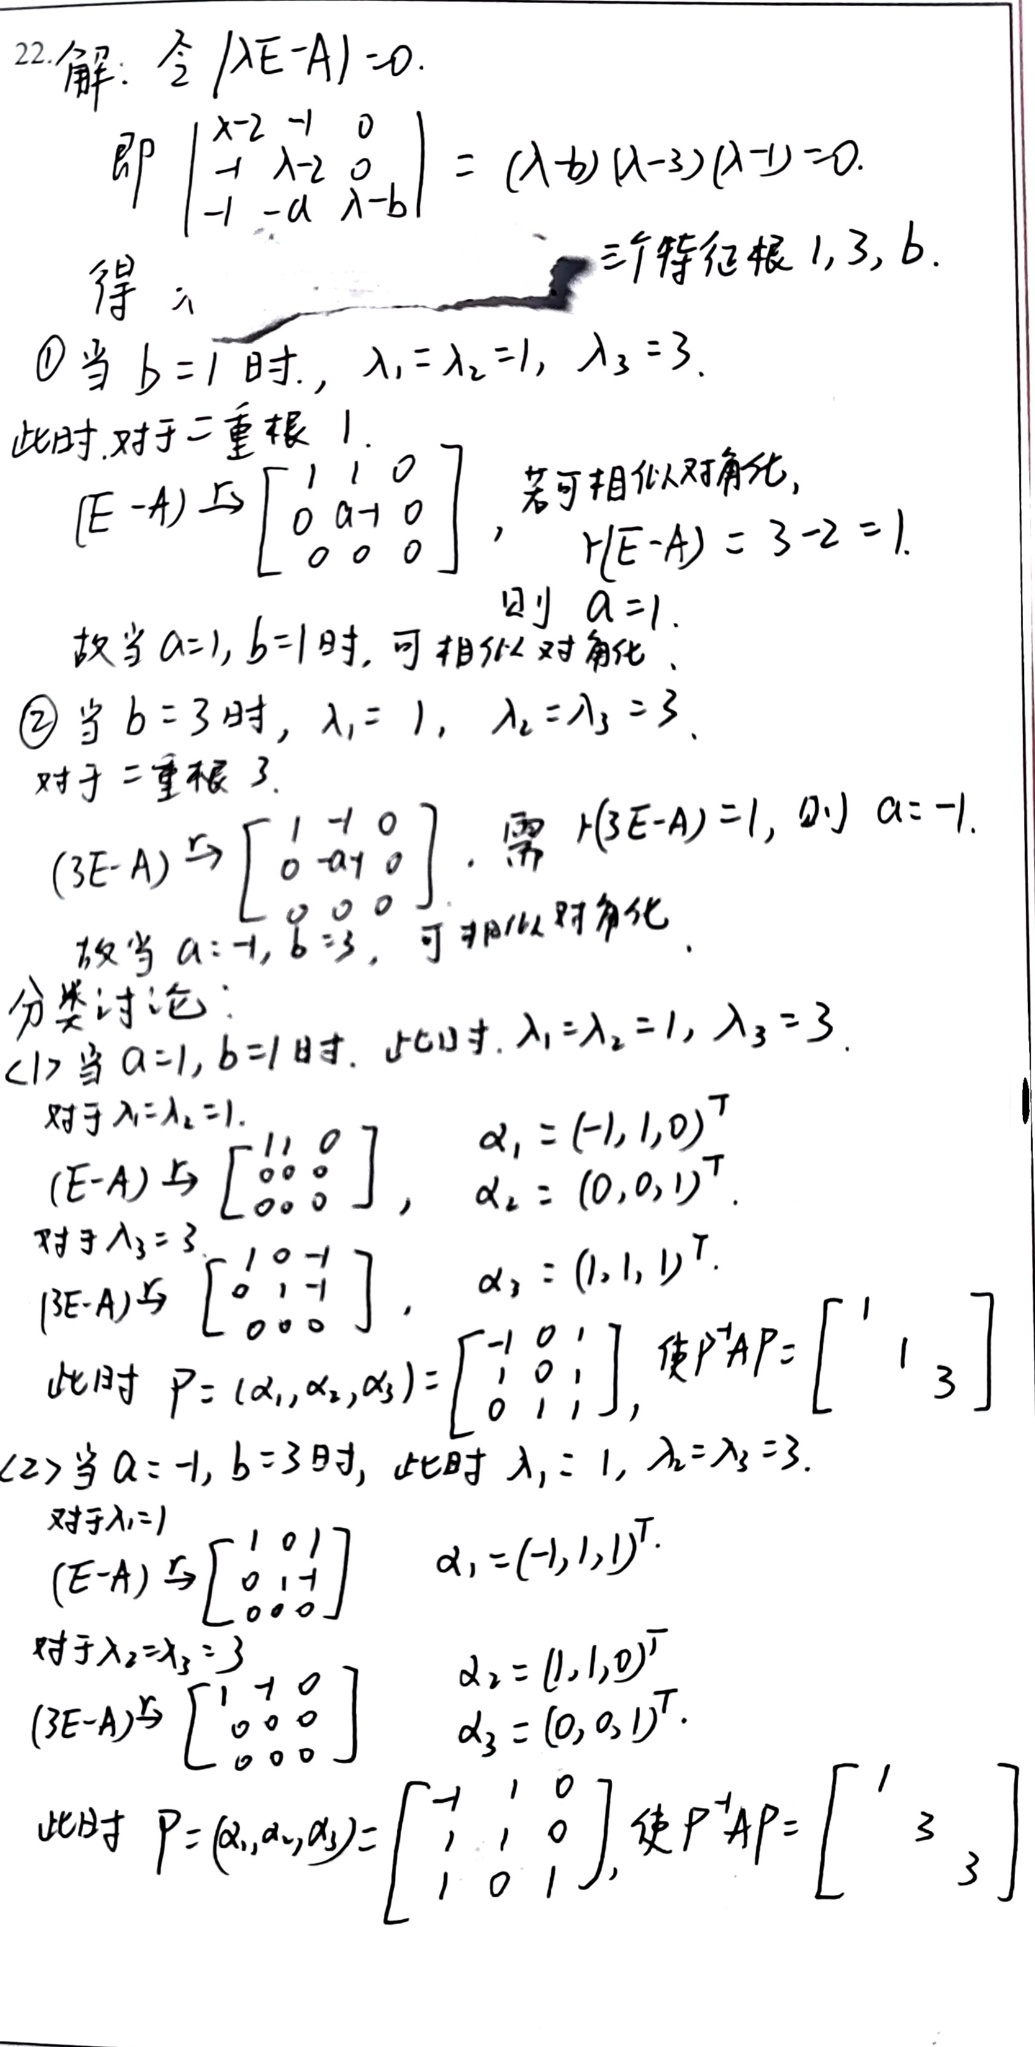 22.解: 令 |λE-A|=0.
即 | λ-2 -1 0 |
| -1 λ-2 0 | = (λ-b)(λ-3)(λ-1)=0.
| -1 -a λ-b |
得 三个特征根 1, 3, b.
① 当 b=1 时., λ₁=λ₂=1, λ₃=3.
此时.对于二重根 1.
(E-A) r→ [ 1 1 0 ; 0 a-1 0 ; 0 0 0 ], 若可相似对角化,
r(E-A) = 3-2 = 1.
则 a=1.
故当 a=1, b=1时, 可相似对角化.
② 当 b=3时, λ₁=1, λ₂=λ₃=3.
对于二重根 3.
(3E-A) r→ [ 1 -1 0 ; 0 -a-1 0 ; 0 0 0 ]. 需 r(3E-A)=1, 则 a=-1.
故当 a=-1, b=3, 可相似对角化.
分类讨论:
<1> 当 a=1, b=1时. 此时. λ₁=λ₂=1, λ₃=3.
对于λ₁=λ₂=1.
(E-A) r→ [ 1 1 0 ; 0 0 0 ; 0 0 0 ], α₁=(-1,1,0)ᵀ
α₂=(0,0,1)ᵀ.
对于λ₃=3.
(3E-A) r→ [ 1 0 -1 ; 0 1 -1 ; 0 0 0 ], α₃=(1,1,1)ᵀ.
此时 P=(α₁,α₂,α₃)= [ -1 0 1 ; 1 0 1 ; 0 1 1 ], 使P⁻¹AP= [ 1 1 3 ]
<2> 当 a=-1, b=3时, 此时 λ₁=1, λ₂=λ₃=3.
对于λ₁=1
(E-A) r→ [ 1 0 1 ; 0 1 -1 ; 0 0 0 ] α₁=(-1,1,1)ᵀ.
对于λ₂=λ₃=3
α₂=(1,1,0)ᵀ
(3E-A) r→ [ 1 -1 0 ; 0 0 0 ; 0 0 0 ] α₃=(0,0,1)ᵀ.
此时 P=(α₁,α₂,α₃)= [ -1 1 0 ; 1 1 0 ; 1 0 1 ], 使P⁻¹AP= [ 1 3 3 ]